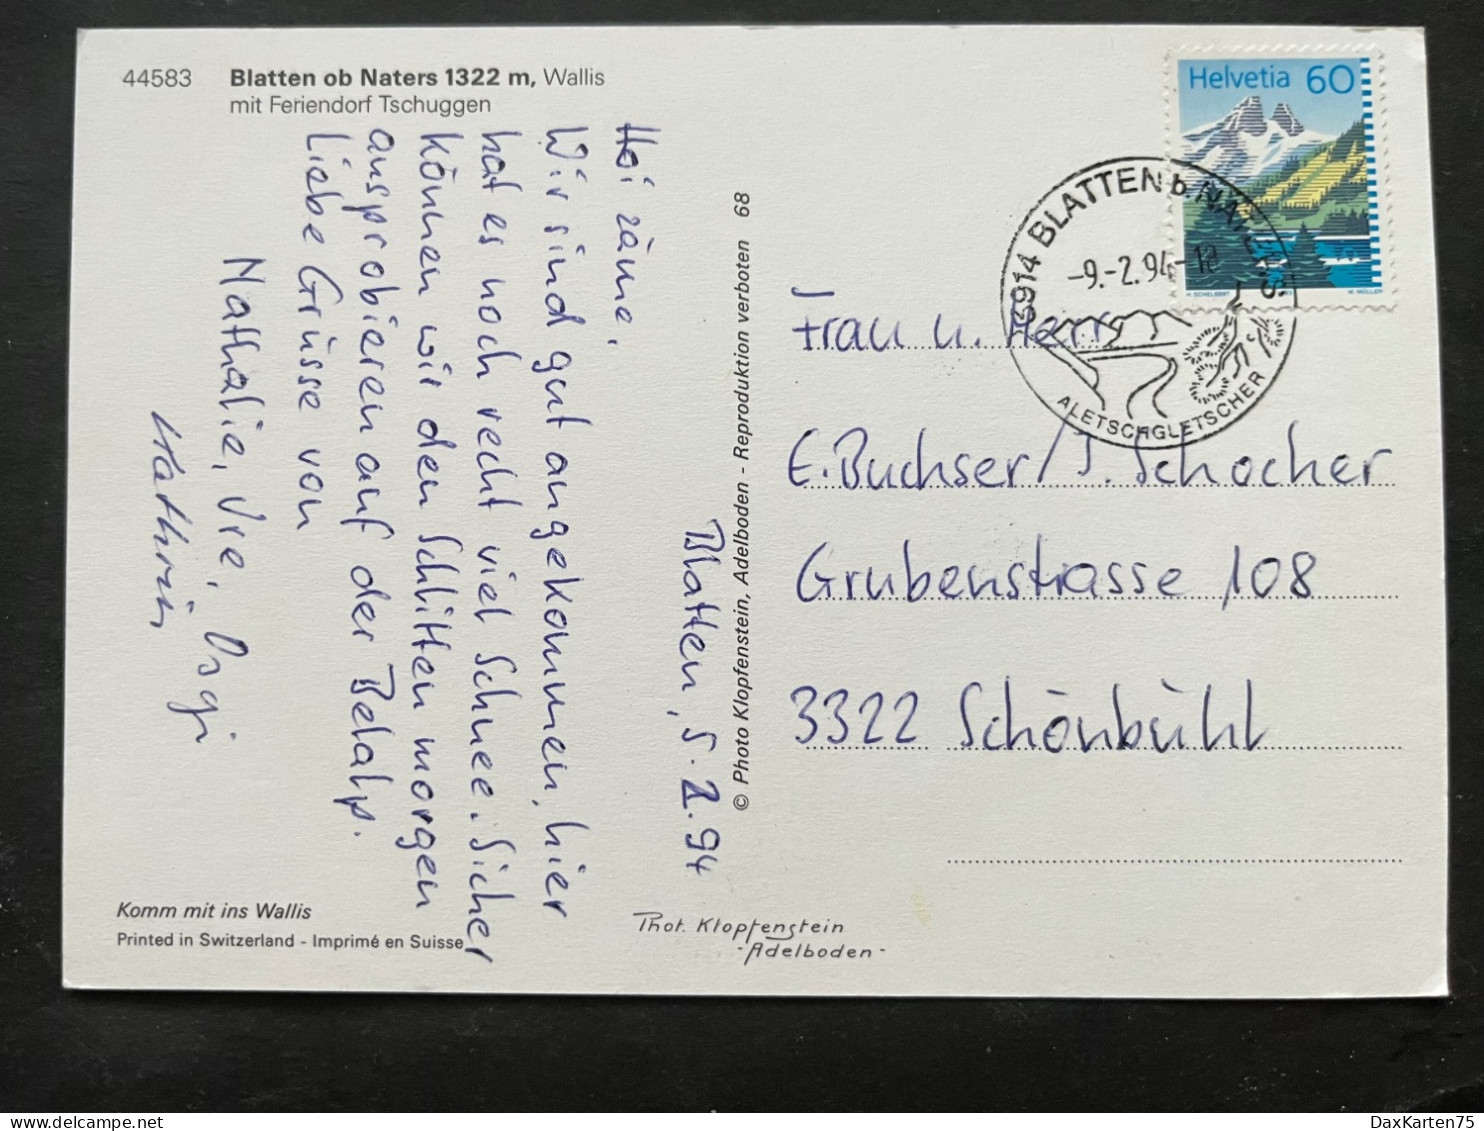 44583 Blatten ob Naters 1322 m, Wallis
mit Feriendorf Tschuggen
Blatten, 5.2.94
Hoi zäme,
Wir sind gut angekommen, hier
hat es noch recht viel Schnee. Sicher
können wir den Schlitten morgen
ausprobieren auf der Belalp.
Liebe Grüsse von
Nathalie, Ure,
Kathrin
© Photo Klopfenstein, Adelboden - Reproduktion verboten 68
Helvetia 60
H. SCHELBERT
M. MÜLLER
3914 BLATTEN b. NATERS
-9.-2.94-18
ALETSCHGLETSCHER
Frau u. Herr
E. Buchser/J. Schocher
Grubenstrasse 108
3322 Schönbühl
Komm mit ins Wallis
Printed in Switzerland - Imprimé en Suisse
Phot. Klopfenstein
-Adelboden-
DaxKarten75